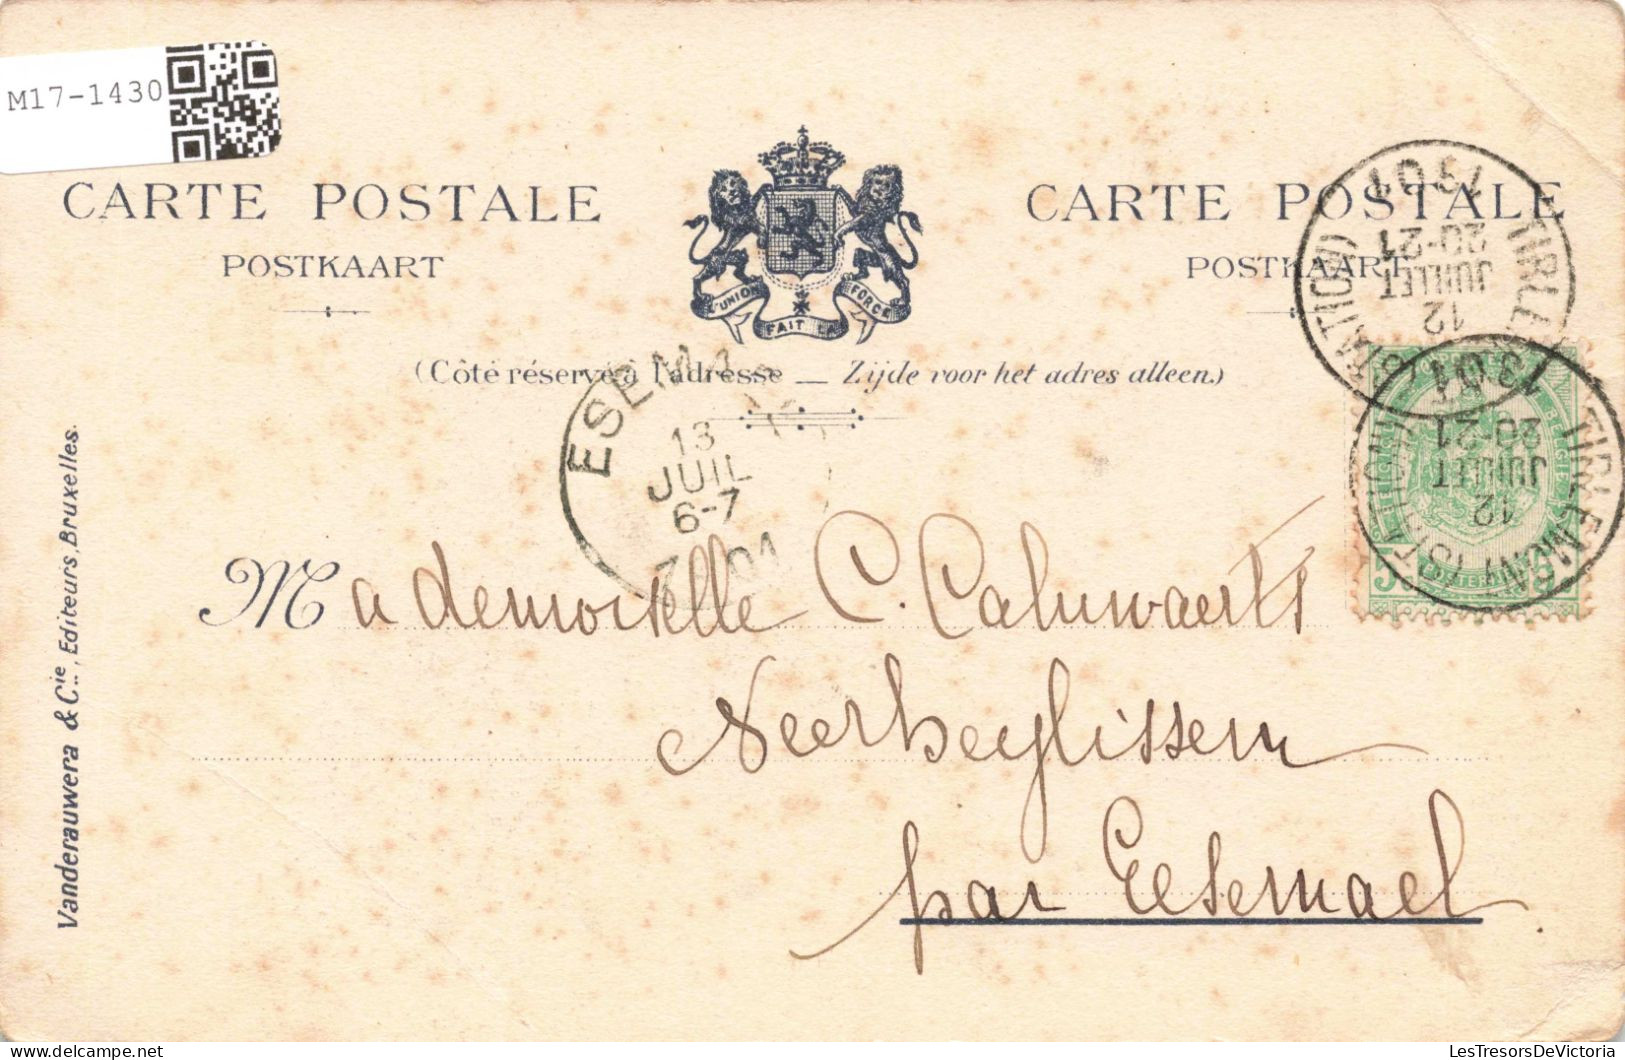 M17-1430
CARTE POSTALE
POSTKAART
L'UNION FAIT LA FORCE
CARTE POSTALE
POSTKAART
(Côté réservé à l'adresse — Zijde voor het adres alleen.)
TIRLEMONT (STATION)
12
JUILLET
20-21
1901
TIRLEMONT (STATION)
12
JUILLET
20-21
1901
ESEMAEL
13
JUIL
6-7
1901
Mademoiselle C. Caluwaerts
Neerheylissem
par Eesemael
Vanderauwera & Cie., Editeurs, Bruxelles.
LesTresorsDeVictoria
delcampe.net